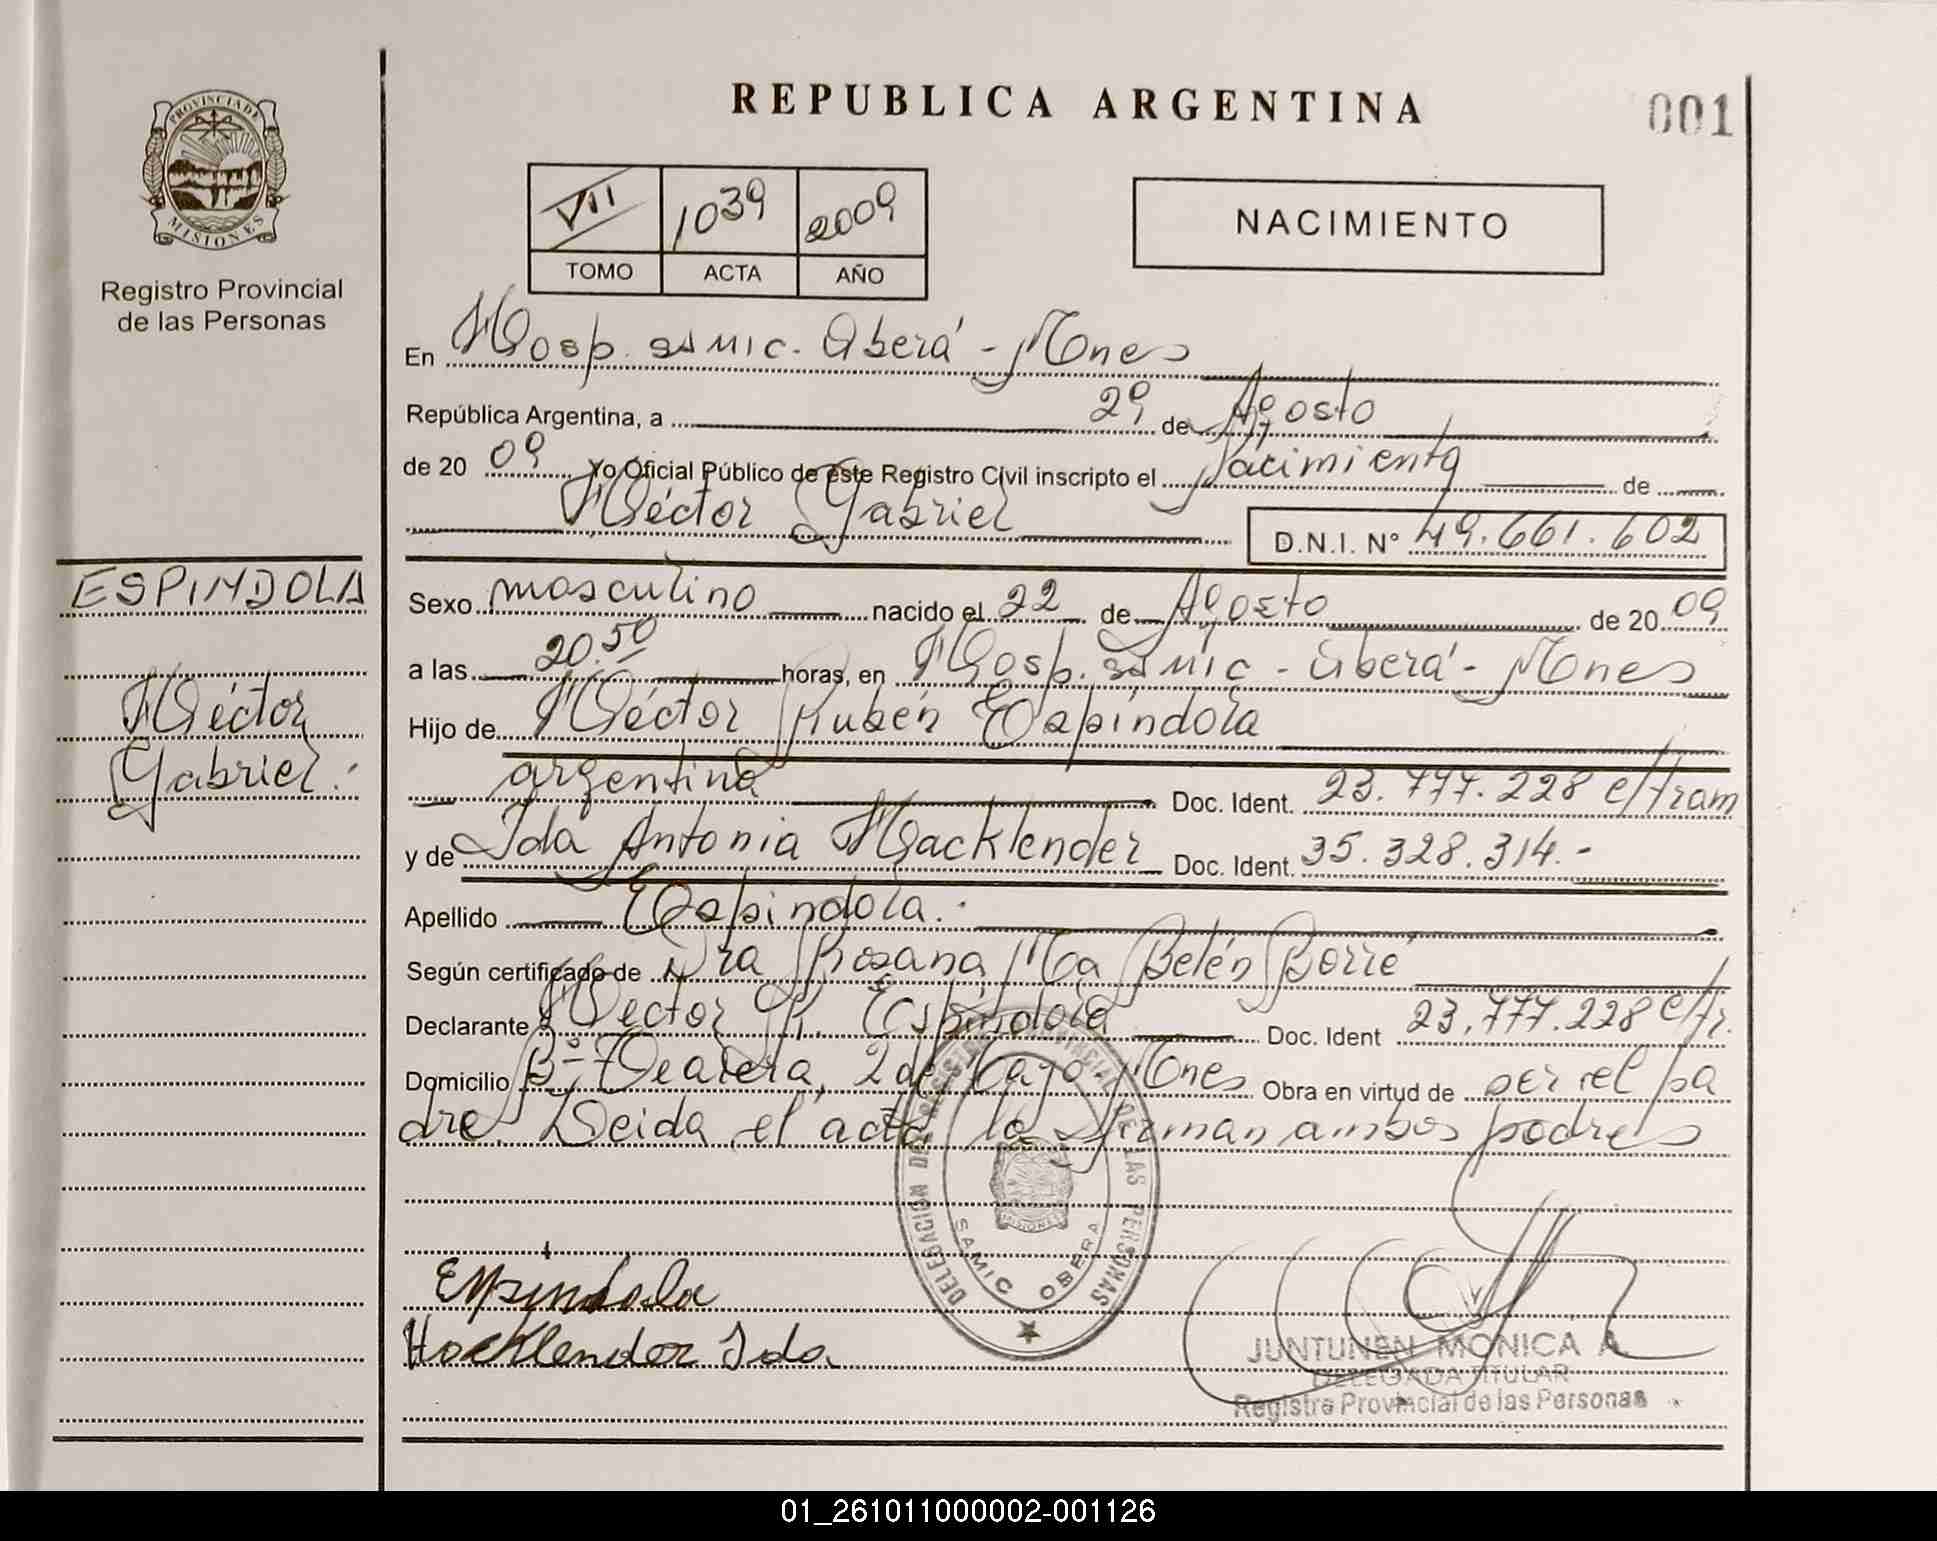 REPUBLICA ARGENTINA
001
PROVINCIA DE
MISIONES
Registro Provincial
de las Personas
VII 1039 2009
TOMO ACTA AÑO
NACIMIENTO
En Hosp. SAMIC. Oberá - Mnes
República Argentina, a 29 de Agosto
de 20 09 Yo Oficial Público de este Registro Civil inscripto el Nacimiento de
Héctor Gabriel D.N.I. N° 49.661.602
ESPINDOLA
Héctor
Gabriel.
Sexo masculino nacido el 22 de Agosto de 20 09
a las 20.50 horas, en Hosp. SAMIC - Oberá - Mnes
Hijo de Héctor Rubén Espíndola
argentina Doc. Ident. 23.777.228 e/tram
y de Ida Antonia Hacklender Doc. Ident. 35.328.314.-
Apellido Espíndola.
Según certificado de Dra Rosana Ma Belén Borré
Declarante Héctor R. Espíndola Doc. Ident 23.777.228 e/tr.
Domicilio B° 2 de Mayo - Mnes Obra en virtud de ser el pa
dre. Leida el acta la firman ambos padres
DELEGACION DEL REGISTRO PROVINCIAL DE LAS PERSONAS
MISIONES
SAMIC OBERA
Espindola
Hacklender Ida
JUNTUNEN MONICA A.
DELEGADA TITULAR
Registro Provincial de las Personas
01_261011000002-001126